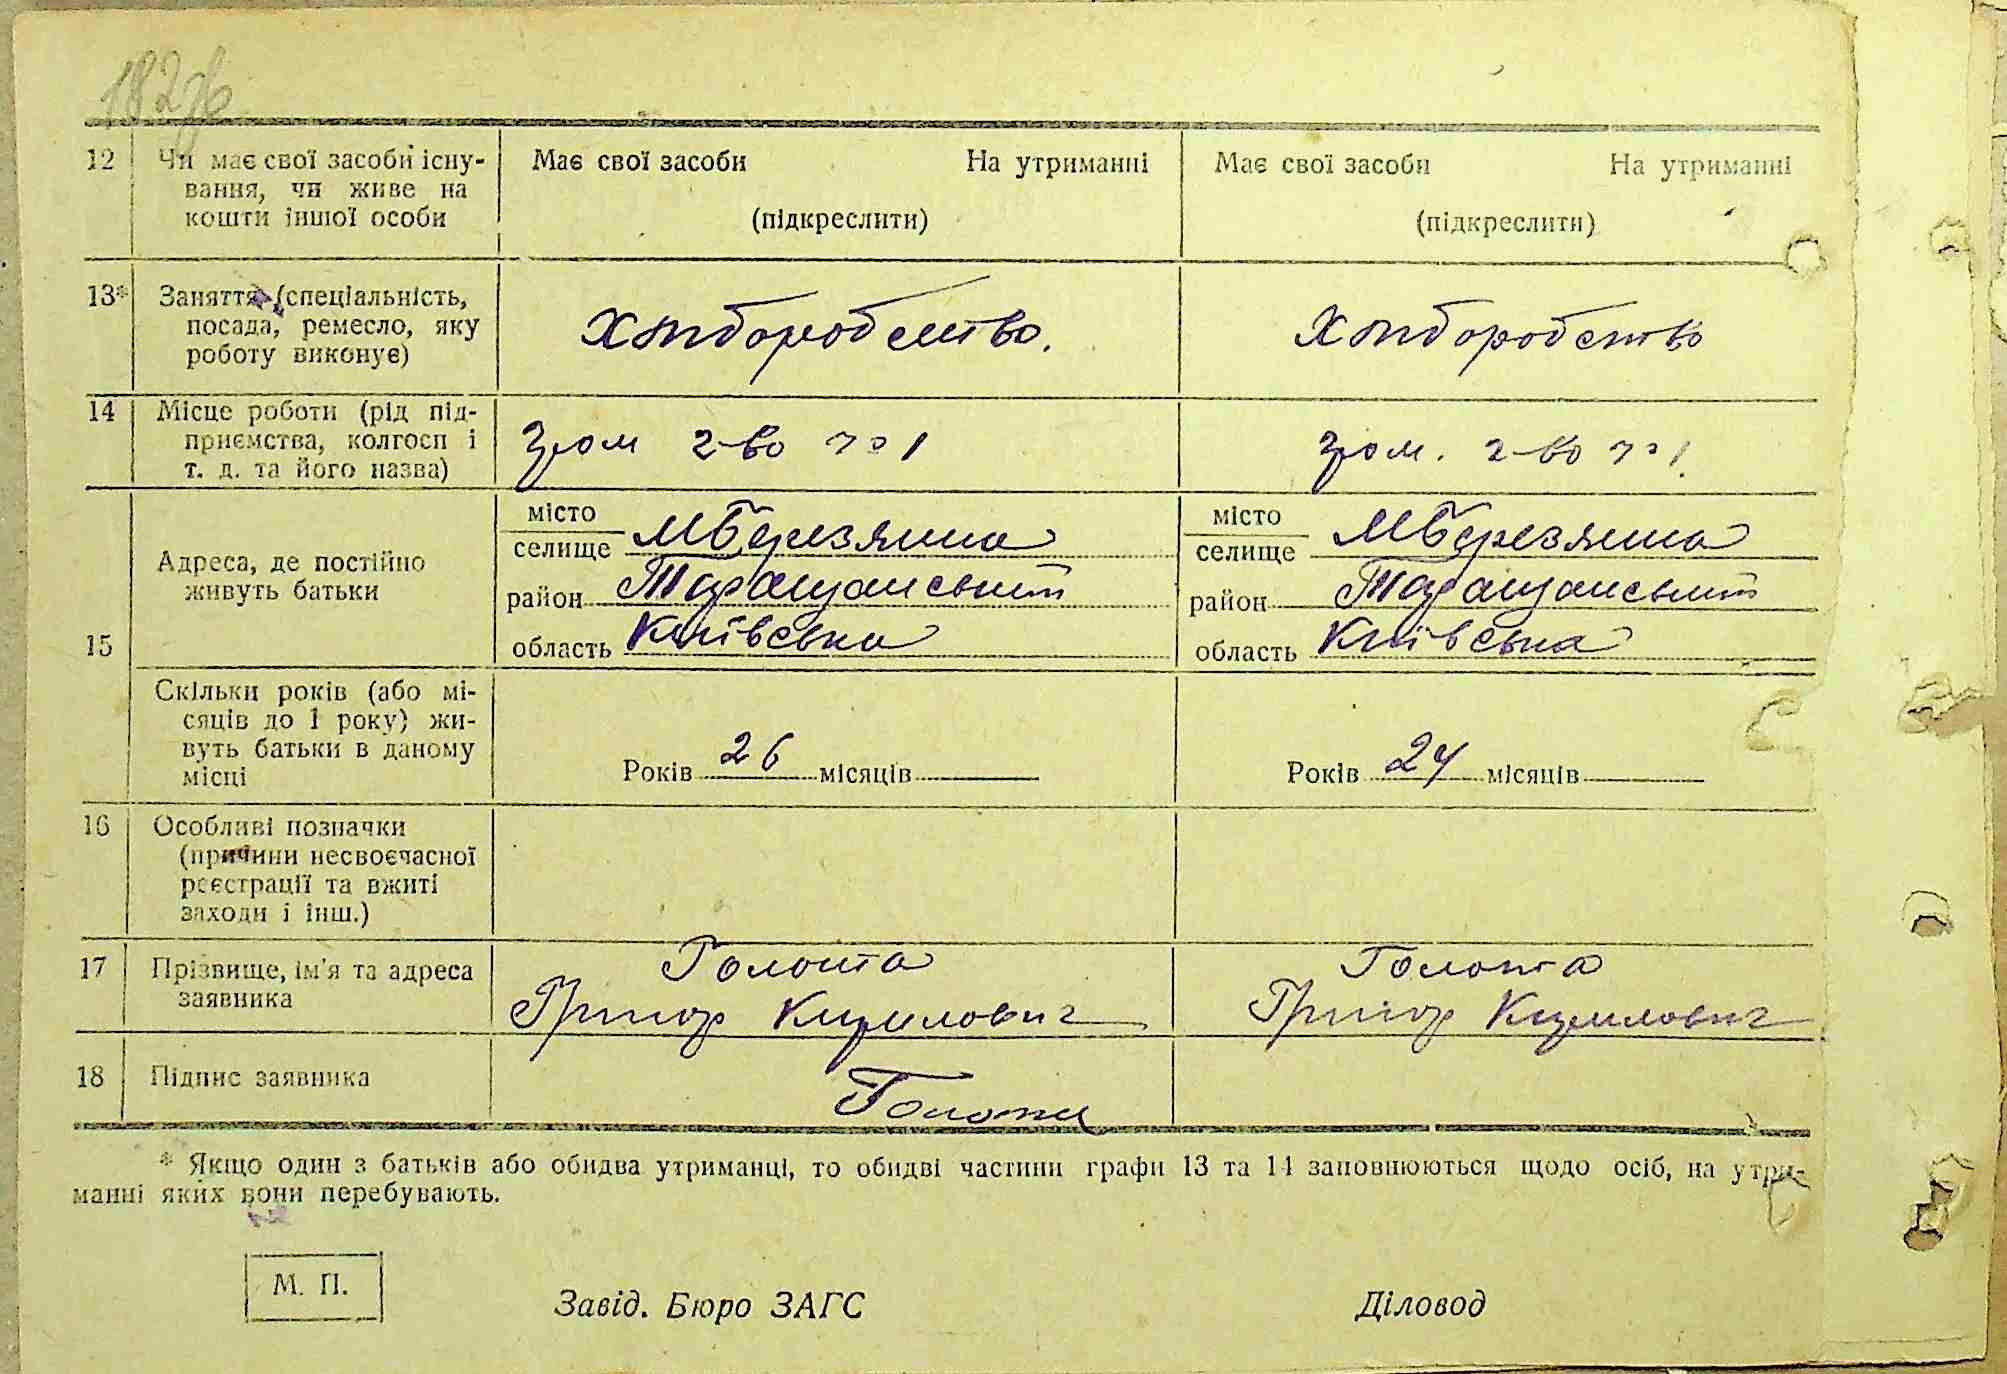 182
12 Чи має свої засоби існу-
вання, чи живе на
кошти іншої особи
Має свої засоби На утриманні
(підкреслити)
Має свої засоби На утриманні
(підкреслити)
13* Заняття (спеціальність,
посада, ремесло, яку
роботу виконує)
Хліборобство.
Хліборобство
14 Місце роботи (рід під-
приємства, колгосп і
т. д. та його назва)
Гром г-во №1
Гром. г-во №1.
15
Адреса, де постійно
живуть батьки
місто
селище МБерезянка
район Таращанський
область Київська
місто
селище МБерезянка
район Таращанський
область Київська
Скільки років (або мі-
сяців до 1 року) жи-
вуть батьки в даному
місці
Років 26 місяців
Років 24 місяців
16 Особливі позначки
(причини несвоєчасної
реєстрації та вжиті
заходи і інш.)
17 Прізвище, ім'я та адреса
заявника
Голота
Григор Кирилович
Голота
Григор Кирилович
18 Підпис заявника
Голота
* Якщо один з батьків або обидва утриманці, то обидві частини графи 13 та 14 заповнюються щодо осіб, на утри-
манні яких вони перебувають.
М. П.
Завід. Бюро ЗАГС
Діловод